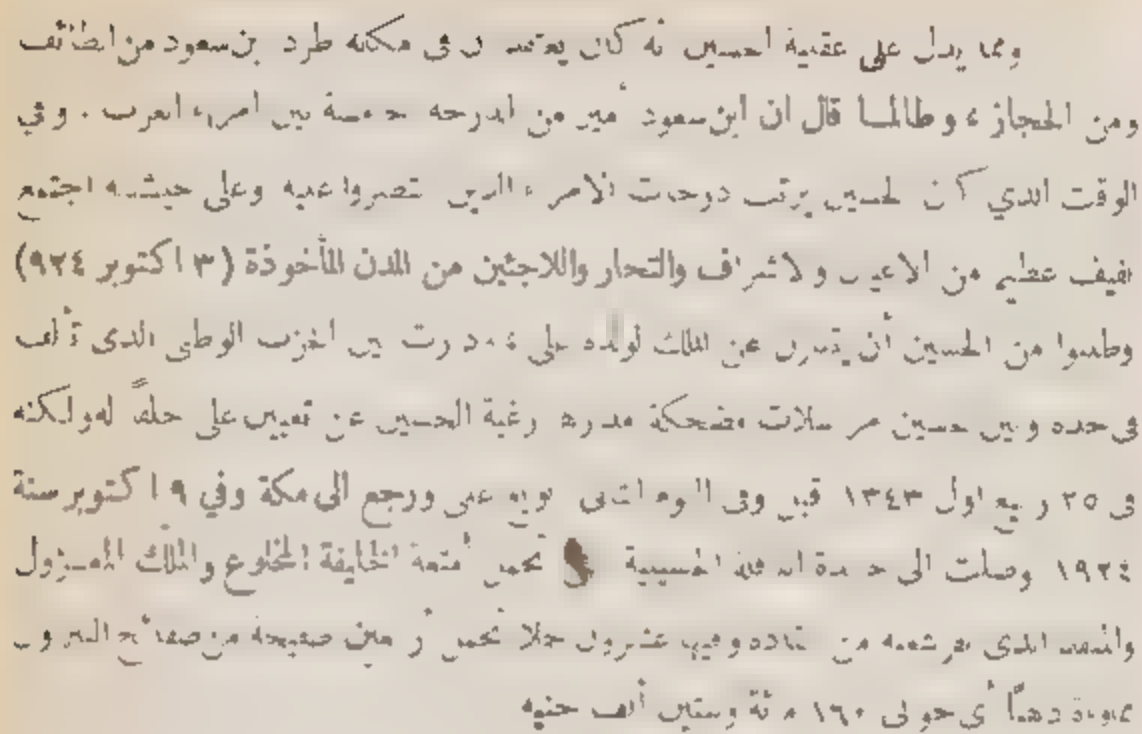 ومما يدل على عقلية الحسين أنه كان يعتقد أن في مكانه طرد ابن سعود من الطائف
ومن الحجاز ، وطالما قال ان ابن سعود أمير من الدرجة الخامسة بين امراء العرب . وفي
الوقت الذي كان الحسين يرتب درجات الامراء الذين انتصروا عليه وعلى جيشه اجتمع
لفيف عظيم من الاعيان والاشراف والتجار واللاجئين من المدن المأخوذة (٣ اكتوبر ٩٢٤)
وطلبوا من الحسين أن يتنازل عن الملك لولده علي ، ودارت بين الحزب الوطني الذي تألف
في جده وبين حسين مراسلات مضحكة مدارها رغبة الحسين عن تعيين علي خلفاً له ولكنه
في ٢٥ ربيع اول ١٣٤٣ قبل وفي اليوم الثاني بويع علي ورجع الى مكة وفي ٩ اكتوبر سنة
١٩٢٤ وصلت الى جدة الحسينية تحمل أمتعة الخليفة المخلوع والملك المعزول
والذهب الذي من عشرون حملا تحمل أربعين صفيحة من صفائح البترول
مملوءة ذهباً أي حوالى ١٦٠ مائة وستين ألف جنيه